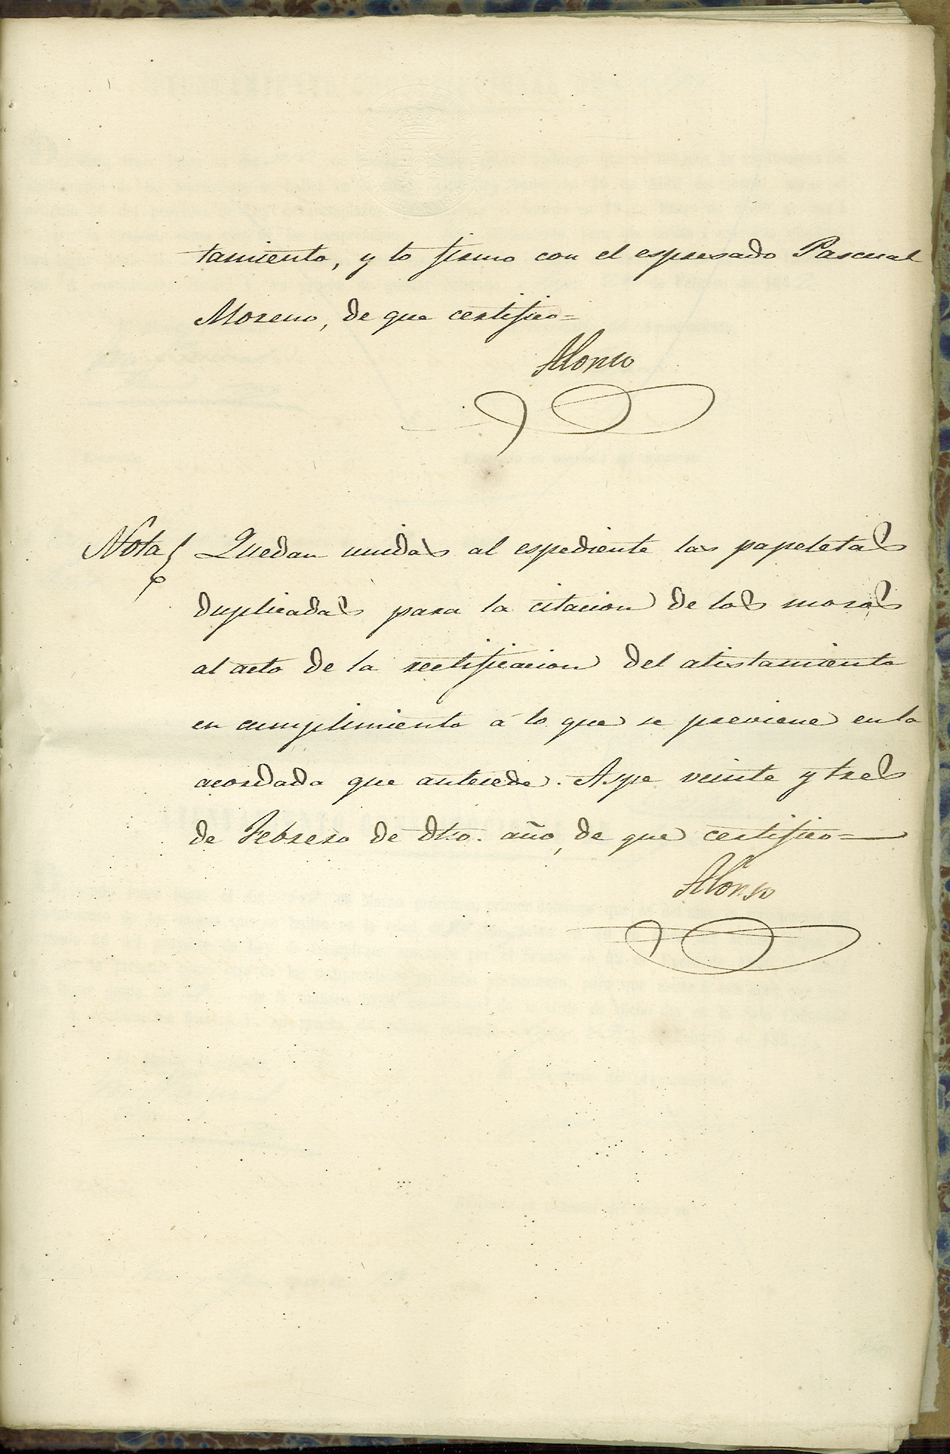 tamiento, y lo firmo con el espresado Pascual
Moreno, de que certifico=
Alonso
Nota{ Quedan unidas al espediente las papeletas
duplicadas para la citacion de los mozos
al acto de la rectificacion del alistamiento
en cumplimiento á lo que se previene en lo
acordado que antecede. Aspe veinte y tres
de Febrero de dho. año, de que certifico=
Alonso